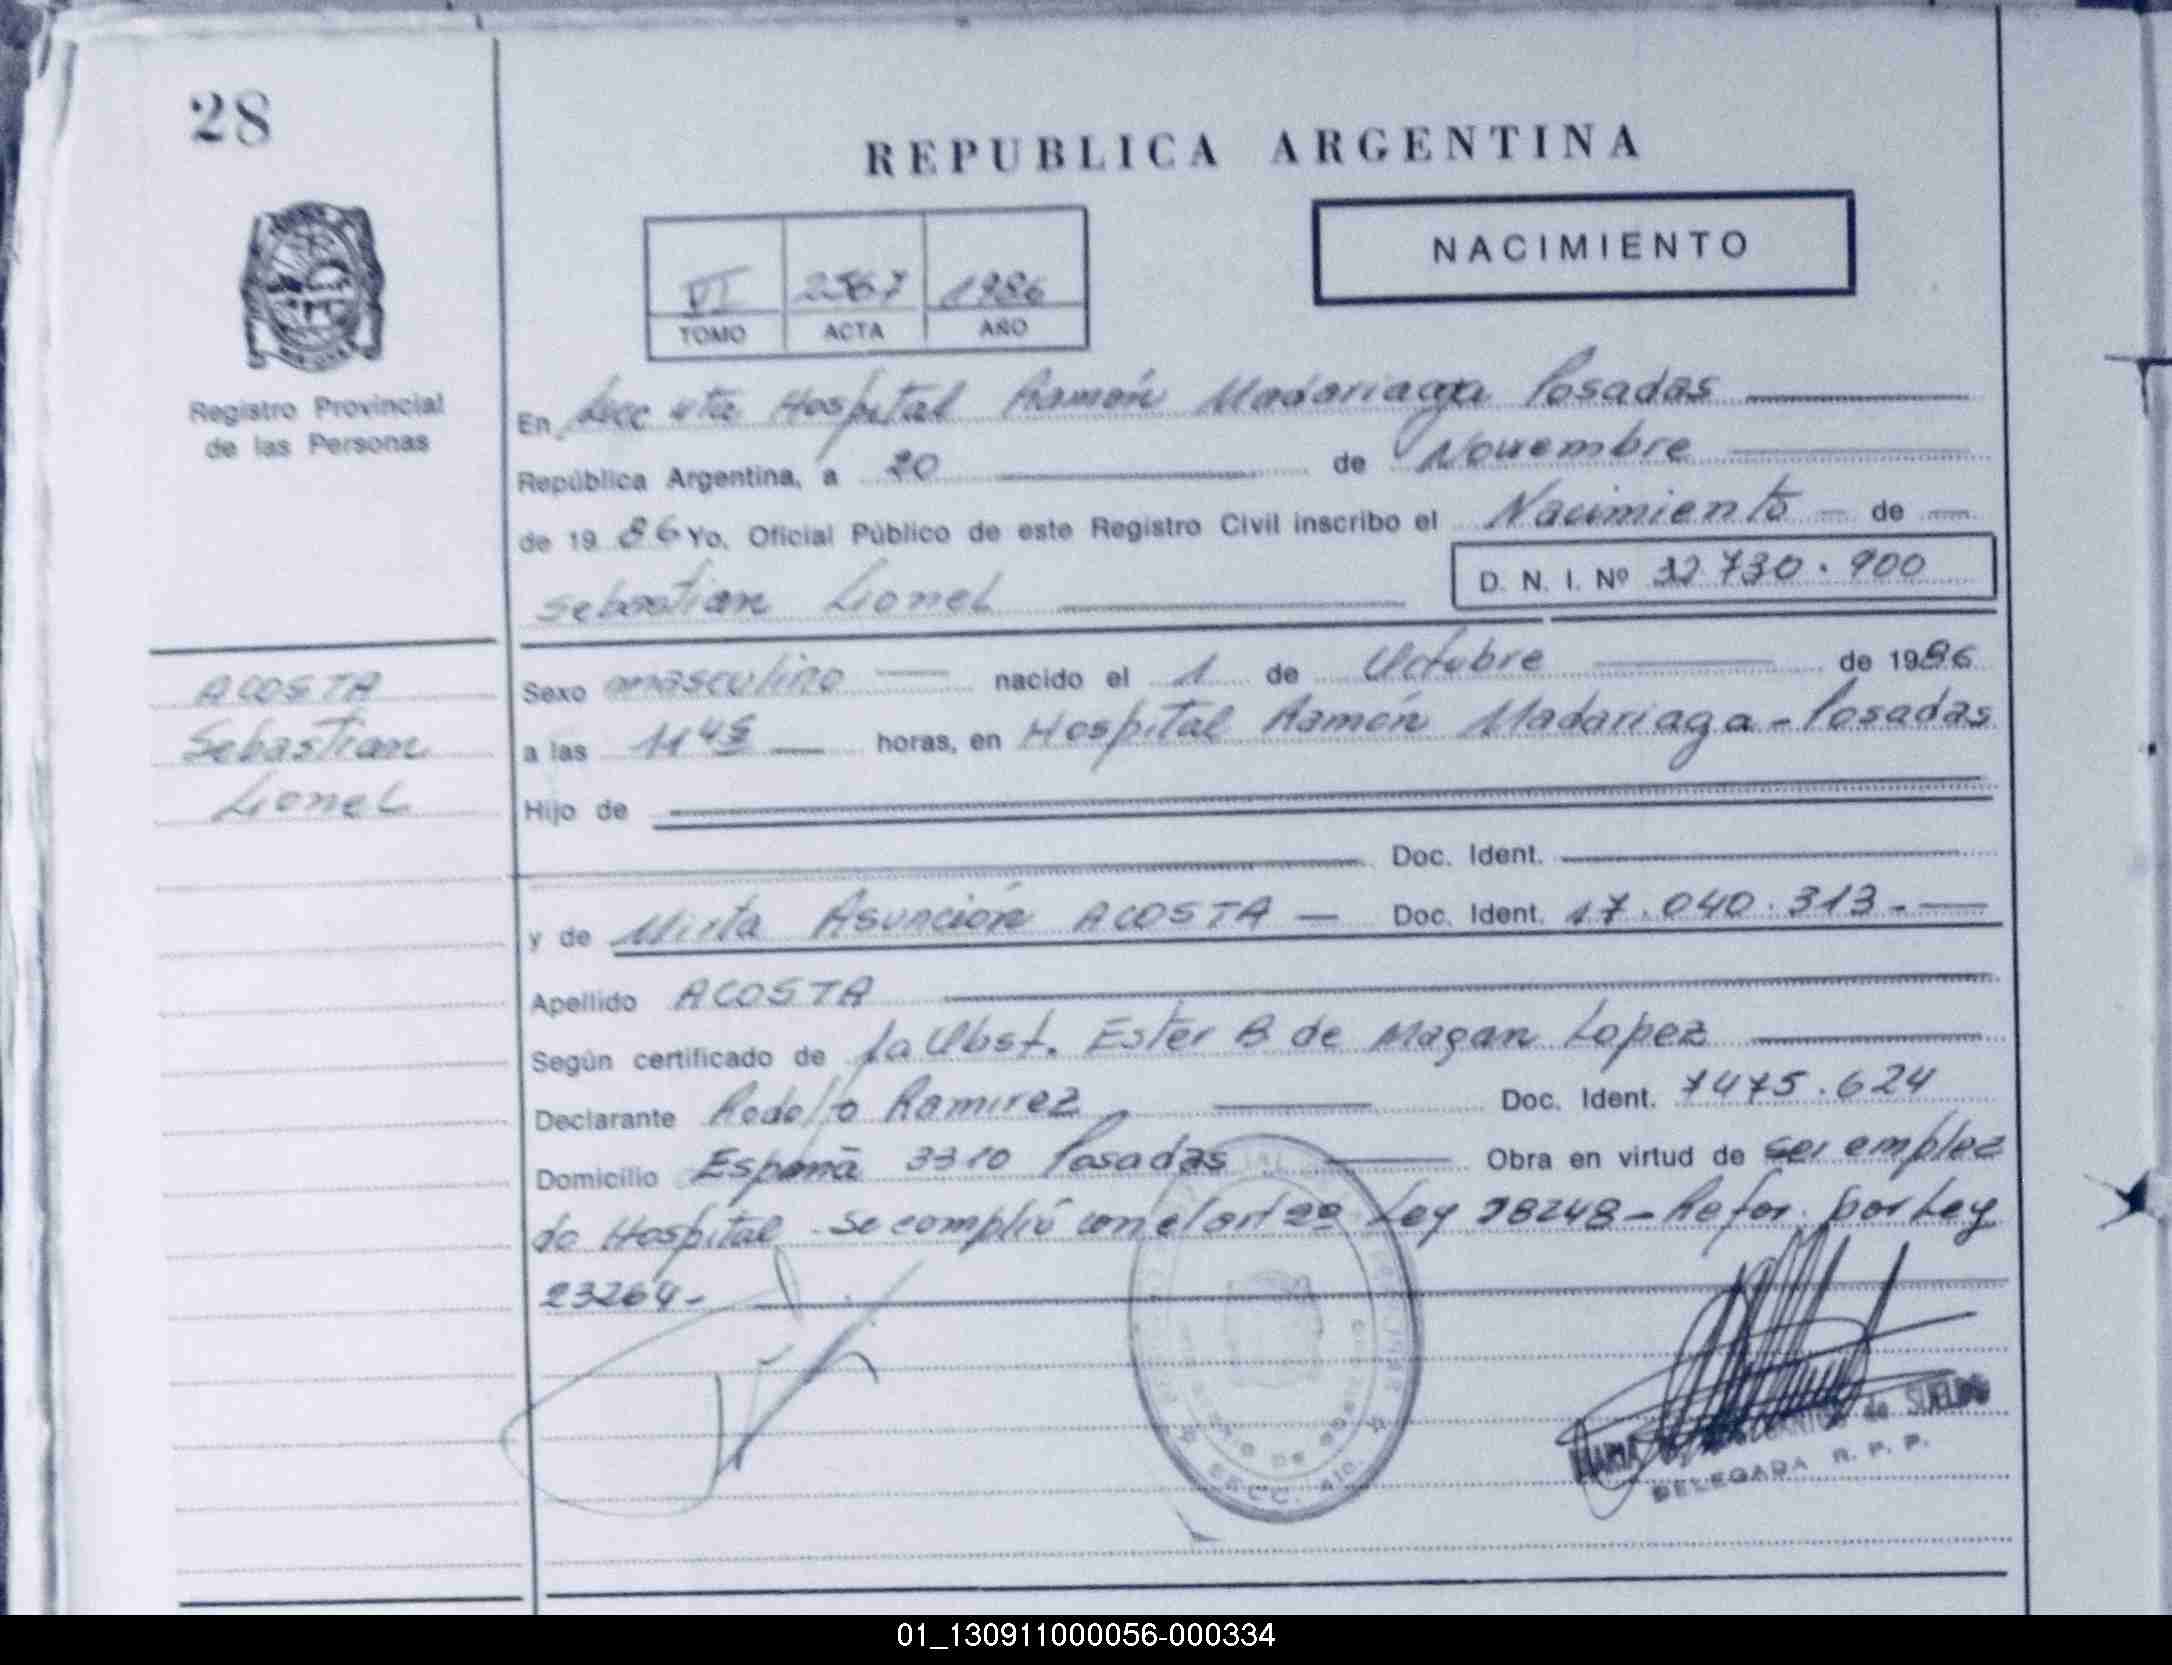 28
REPUBLICA ARGENTINA
NACIMIENTO
VI 2567 1986
TOMO ACTA AÑO
Registro Provincial
de las Personas
En Secc 4ta Hospital Ramón Madariaga Posadas
República Argentina, a 20 de Noviembre
de 1986 Yo, Oficial Público de este Registro Civil inscribo el Nacimiento de
Sebastian Lionel
D. N. I. Nº 32730.900
ACOSTA
Sebastian
Lionel
Sexo masculino nacido el 1 de Octubre de 1986
a las 11 45 horas, en Hospital Ramón Madariaga - Posadas
Hijo de
Doc. Ident.
y de Mirta Asunción ACOSTA Doc. Ident. 17.040.313.-
Apellido ACOSTA
Según certificado de la Obst. Ester B de Magan Lopez
Declarante Rodolfo Ramirez Doc. Ident. 7475.624
Domicilio España 3310 Posadas Obra en virtud de ser emplea
do Hospital - Se complió con el art 2º Ley 18248 - Refor. por Ley
23264 -
SECC. 4ta.
MARIA de SUELDO
DELEGADA R. P. P.
01_130911000056-000334